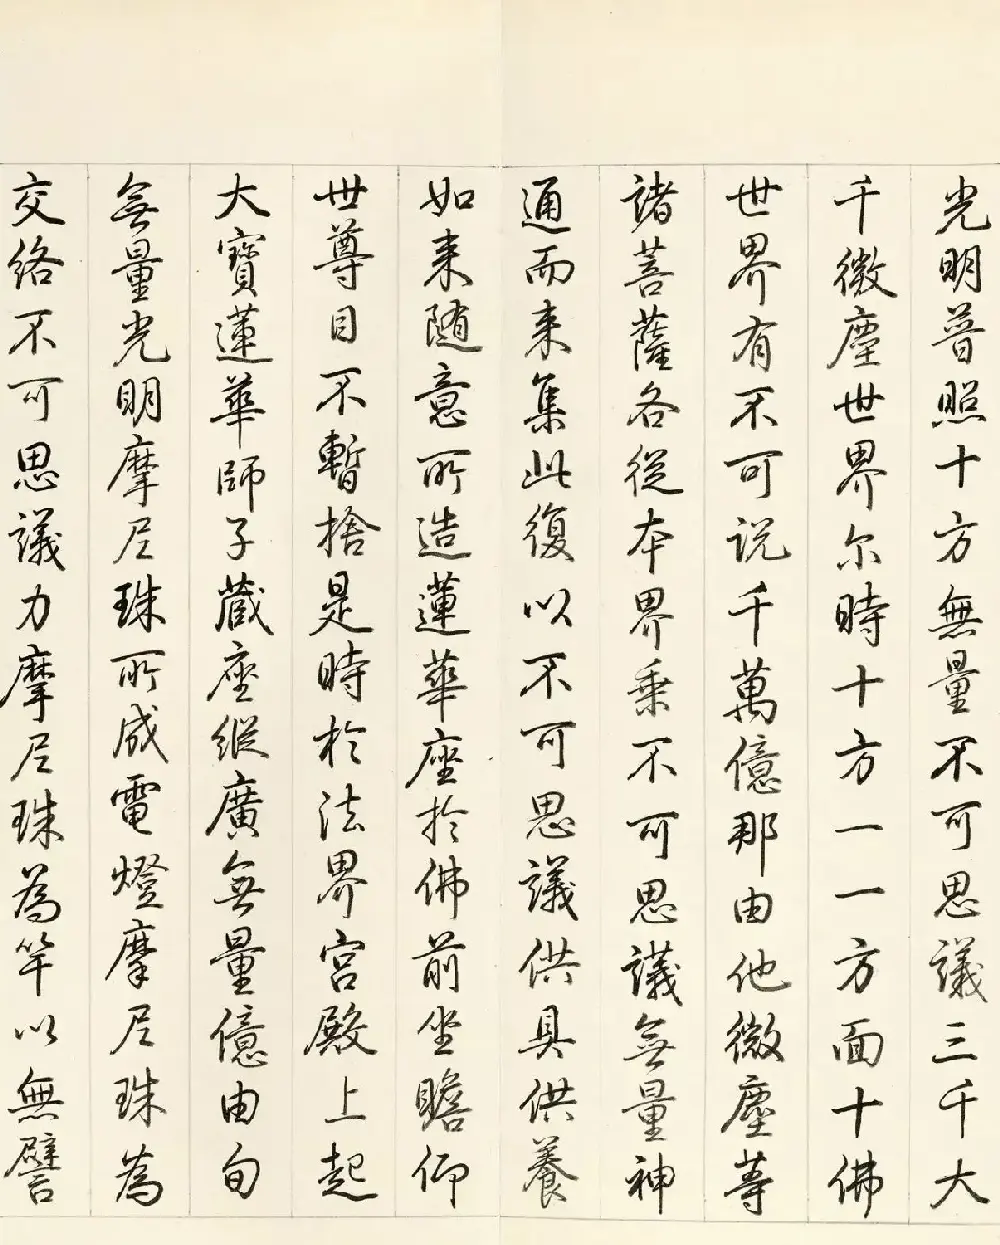 光明普照十方無量不可思議三千大
千微塵世界尔時十方一一方面十佛
世界有不可说千萬億那由他微塵等
諸菩薩各從本界乘不可思議無量神
通而来集此復以不可思議供具供養
如来随意所造蓮華座於佛前坐瞻仰
世尊目不暫捨是時於法界宮殿上起
大寶蓮華師子蔵座縱廣無量億由旬
無量光明摩尼珠所成電燈摩尼珠為
交络不可思議力摩尼珠為竿以無譬